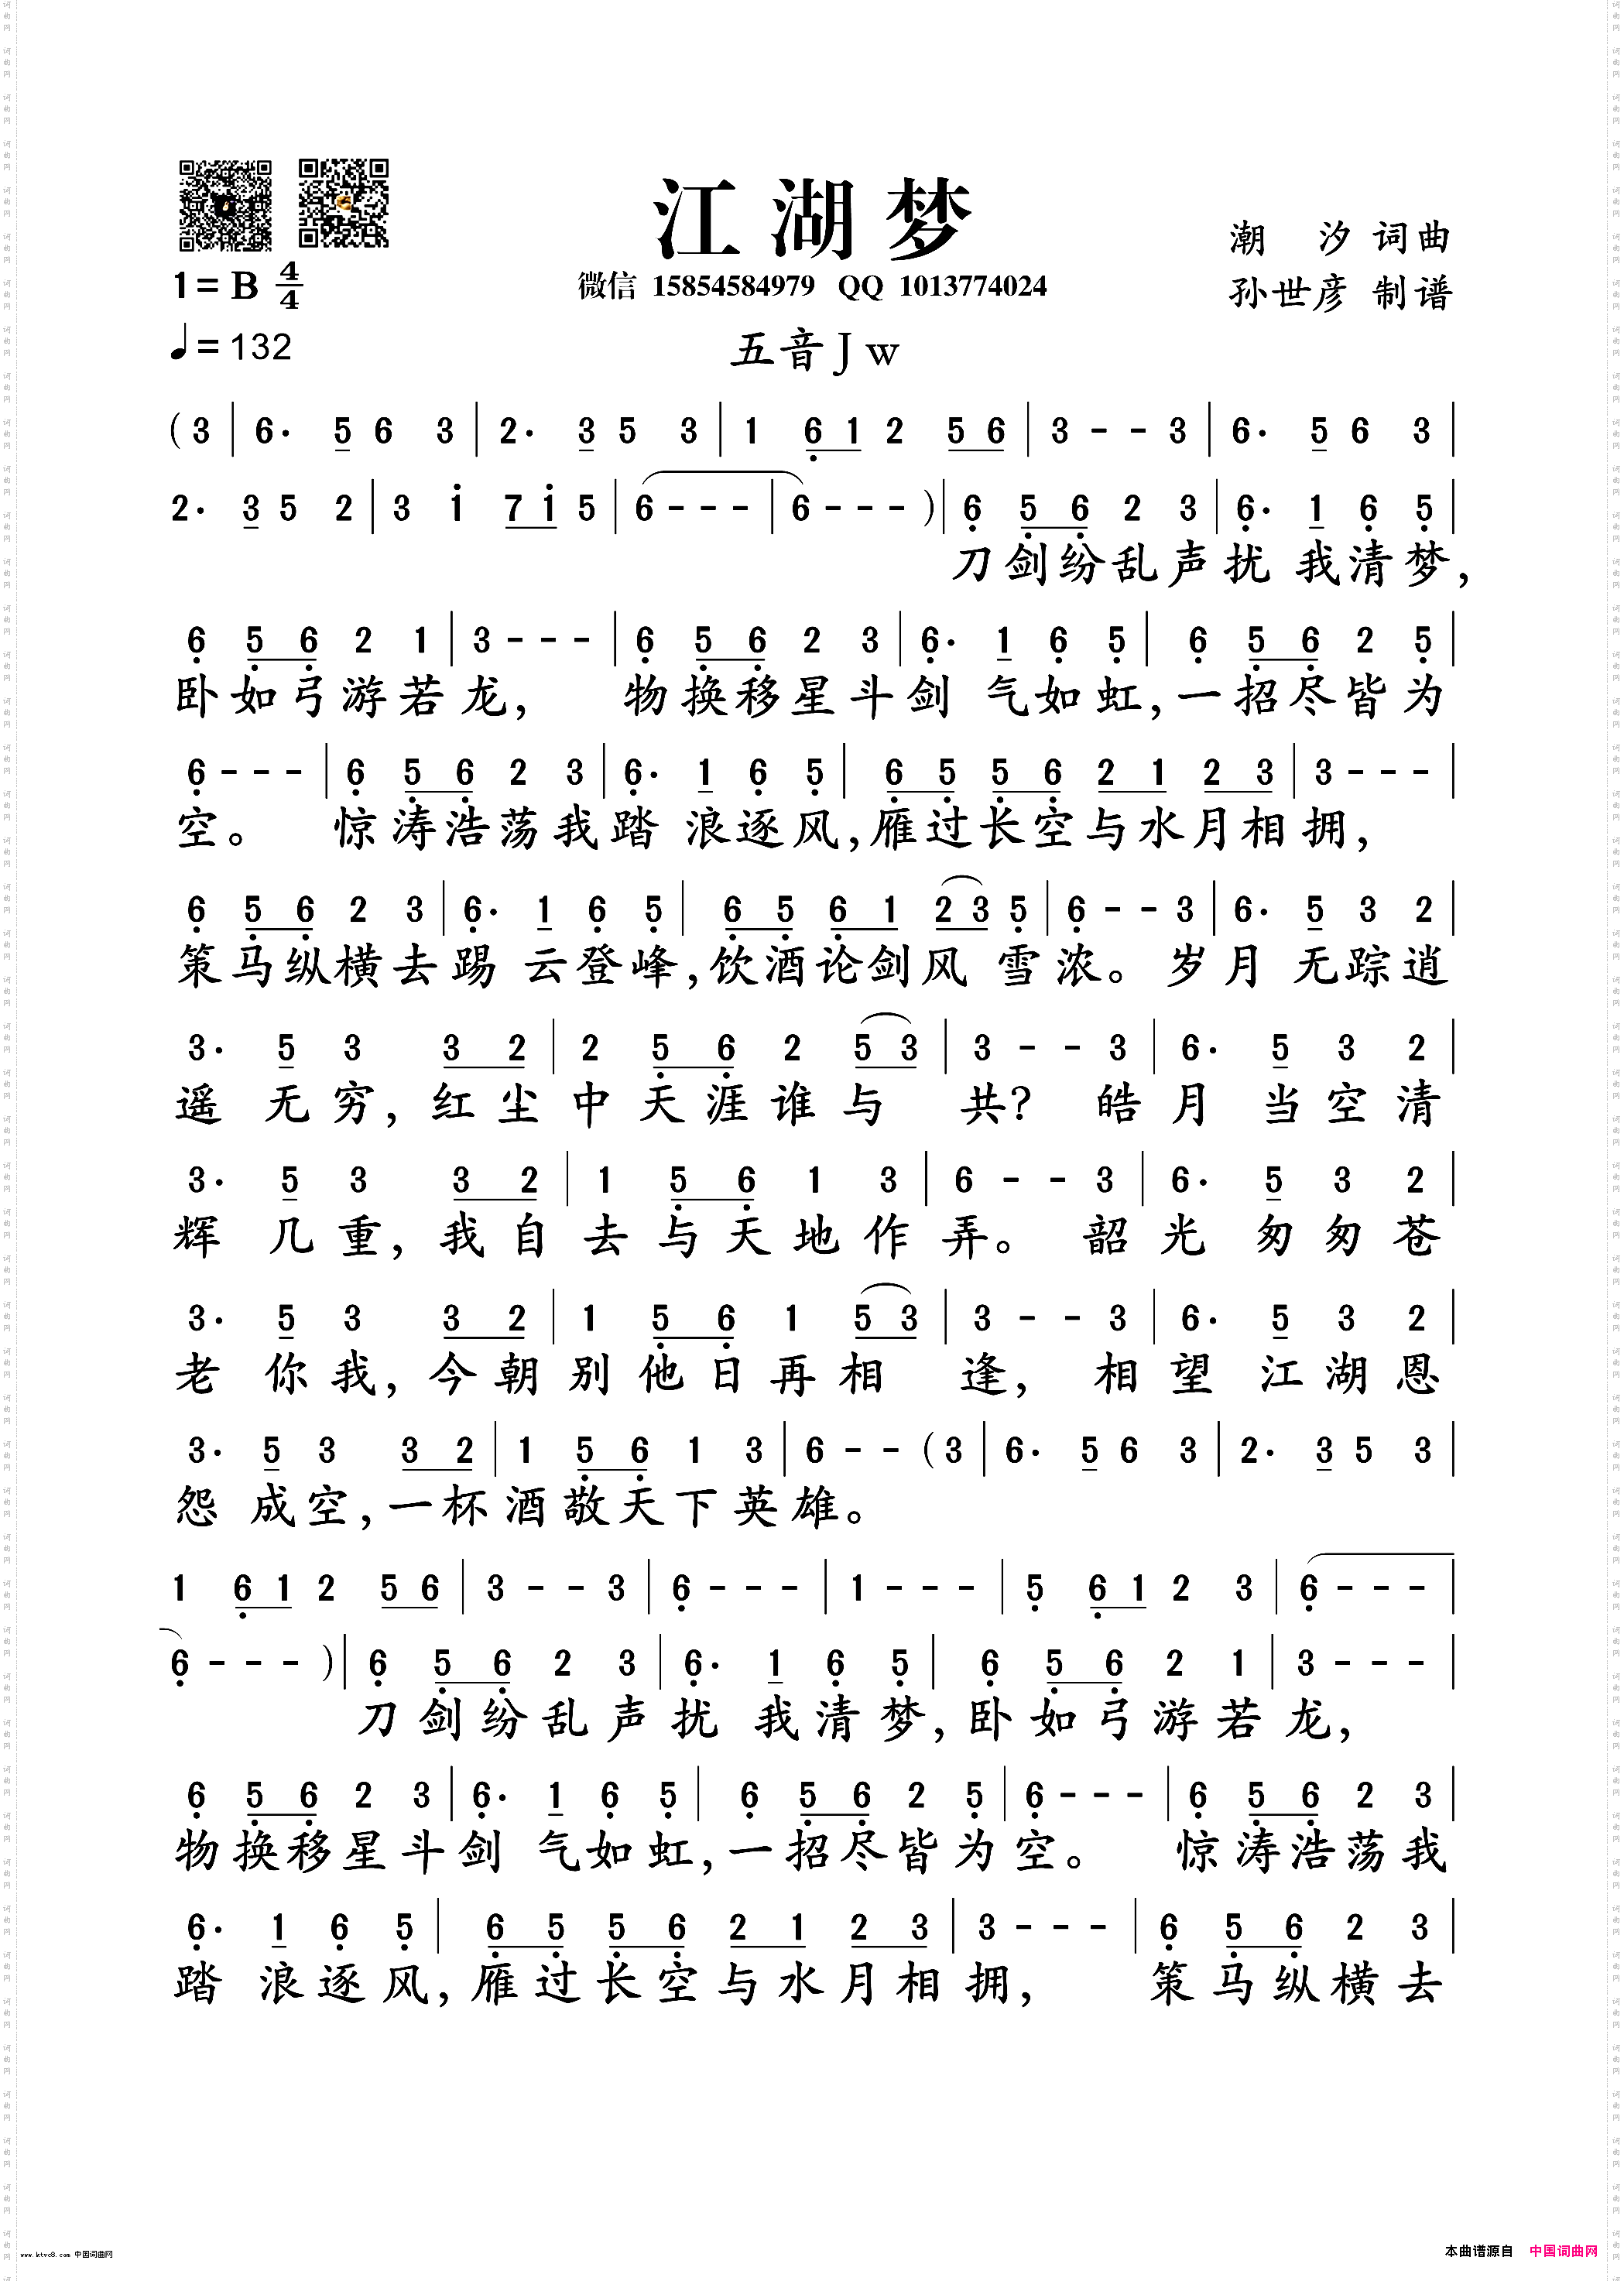 江湖梦
潮 汐 词曲
1=B 4/4
微信 15854584979 QQ 1013774024
孙世彦 制谱
♩=132
五音Jw
(3 | 6· 5 6 3 | 2· 3 5 3 | 1 6̣ 1 2 5 6 | 3 - - 3 | 6· 5 6 3 |
2· 3 5 2 | 3 1̇ 7 1̇ 5 | 6 - - - | 6 - - - ) | 6̣ 5̣ 6̣ 2 3 | 6̣· 1 6̣ 5̣ |
刀剑纷乱声扰 我清梦,
6̣ 5̣ 6̣ 2 1 | 3 - - - | 6̣ 5̣ 6̣ 2 3 | 6̣· 1 6̣ 5̣ | 6̣ 5̣ 6̣ 2 5̣ |
卧如弓游若龙, 物换移星斗剑 气如虹,一招尽皆为
6̣ - - - | 6̣ 5̣ 6̣ 2 3 | 6̣· 1 6̣ 5̣ | 6̣ 5̣ 5̣ 6̣ 2 1 2 3 | 3 - - - |
空。 惊涛浩荡我踏 浪逐风,雁过长空与水月相拥,
6̣ 5̣ 6̣ 2 3 | 6̣· 1 6̣ 5̣ | 6̣ 5̣ 6̣ 1 2 3 5̣ | 6̣ - - 3 | 6· 5 3 2 |
策马纵横去踢 云登峰,饮酒论剑风 雪浓。岁月 无踪逍
3· 5 3 3 2 | 2 5̣ 6̣ 2 5 3 | 3 - - 3 | 6· 5 3 2 |
遥 无穷,红尘中天涯谁与 共? 皓月 当空清
3· 5 3 3 2 | 1 5̣ 6̣ 1 3 | 6 - - 3 | 6· 5 3 2 |
辉 几重,我自去与天地作弄。 韶光 匆匆苍
3· 5 3 3 2 | 1 5̣ 6̣ 1 5 3 | 3 - - 3 | 6· 5 3 2 |
老 你我,今朝别他日再相 逢, 相望 江湖恩
3· 5 3 3 2 | 1 5̣ 6̣ 1 3 | 6 - - (3 | 6· 5 6 3 | 2· 3 5 3 |
怨 成空,一杯酒敬天下英雄。
1 6̣ 1 2 5 6 | 3 - - 3 | 6̣ - - - | 1 - - - | 5̣ 6̣ 1 2 3 | 6̣ - - - |
6̣ - - - ) | 6̣ 5̣ 6̣ 2 3 | 6̣· 1 6̣ 5̣ | 6̣ 5̣ 6̣ 2 1 | 3 - - - |
刀剑纷乱声扰 我清梦,卧如弓游若龙,
6̣ 5̣ 6̣ 2 3 | 6̣· 1 6̣ 5̣ | 6̣ 5̣ 6̣ 2 5̣ | 6̣ - - - | 6̣ 5̣ 6̣ 2 3 |
物换移星斗剑 气如虹,一招尽皆为空。 惊涛浩荡我
6̣· 1 6̣ 5̣ | 6̣ 5̣ 5̣ 6̣ 2 1 2 3 | 3 - - - | 6̣ 5̣ 6̣ 2 3 |
踏 浪逐风,雁过长空与水月相拥, 策马纵横去
www.ktvc8.com 中国词曲网
本曲谱源自 中国词曲网